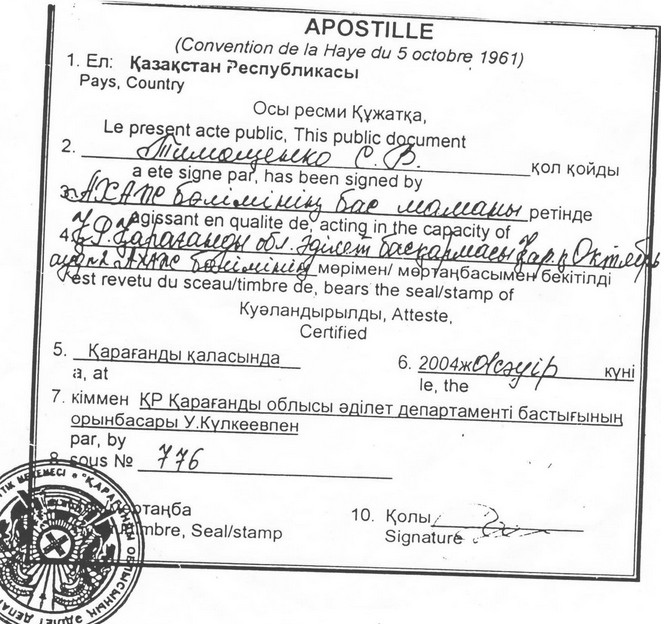 APOSTILLE
(Convention de la Haye du 5 octobre 1961)
1. Ел: Қазақстан Республикасы
Pays, Country
Осы ресми Құжатқа,
Le present acte public, This public document
2. Тимощенко С. В. қол қойды
a ete signe par, has been signed by
3. АХАЖ бөлімінің бас маманы ретінде
agissant en qualite de, acting in the capacity of
4. ҚР Қарағанды обл. әділет басқармасы Қар. қ Октябрь
ауд АХАЖ бөлімінің мөрімен/ мөртаңбасымен бекітілді
est revetu du sceau/timbre de, bears the seal/stamp of
Куәландырылды, Atteste,
Certified
5. Қарағанды қаласында
a, at
6. 2004ж күні
le, the
7. кіммен ҚР Қарағанды облысы әділет департаменті бастығының
орынбасары У.Күлкеевпен
par, by
8. sous № 776
мбре, Seal/stamp
10. Қолы
Signature